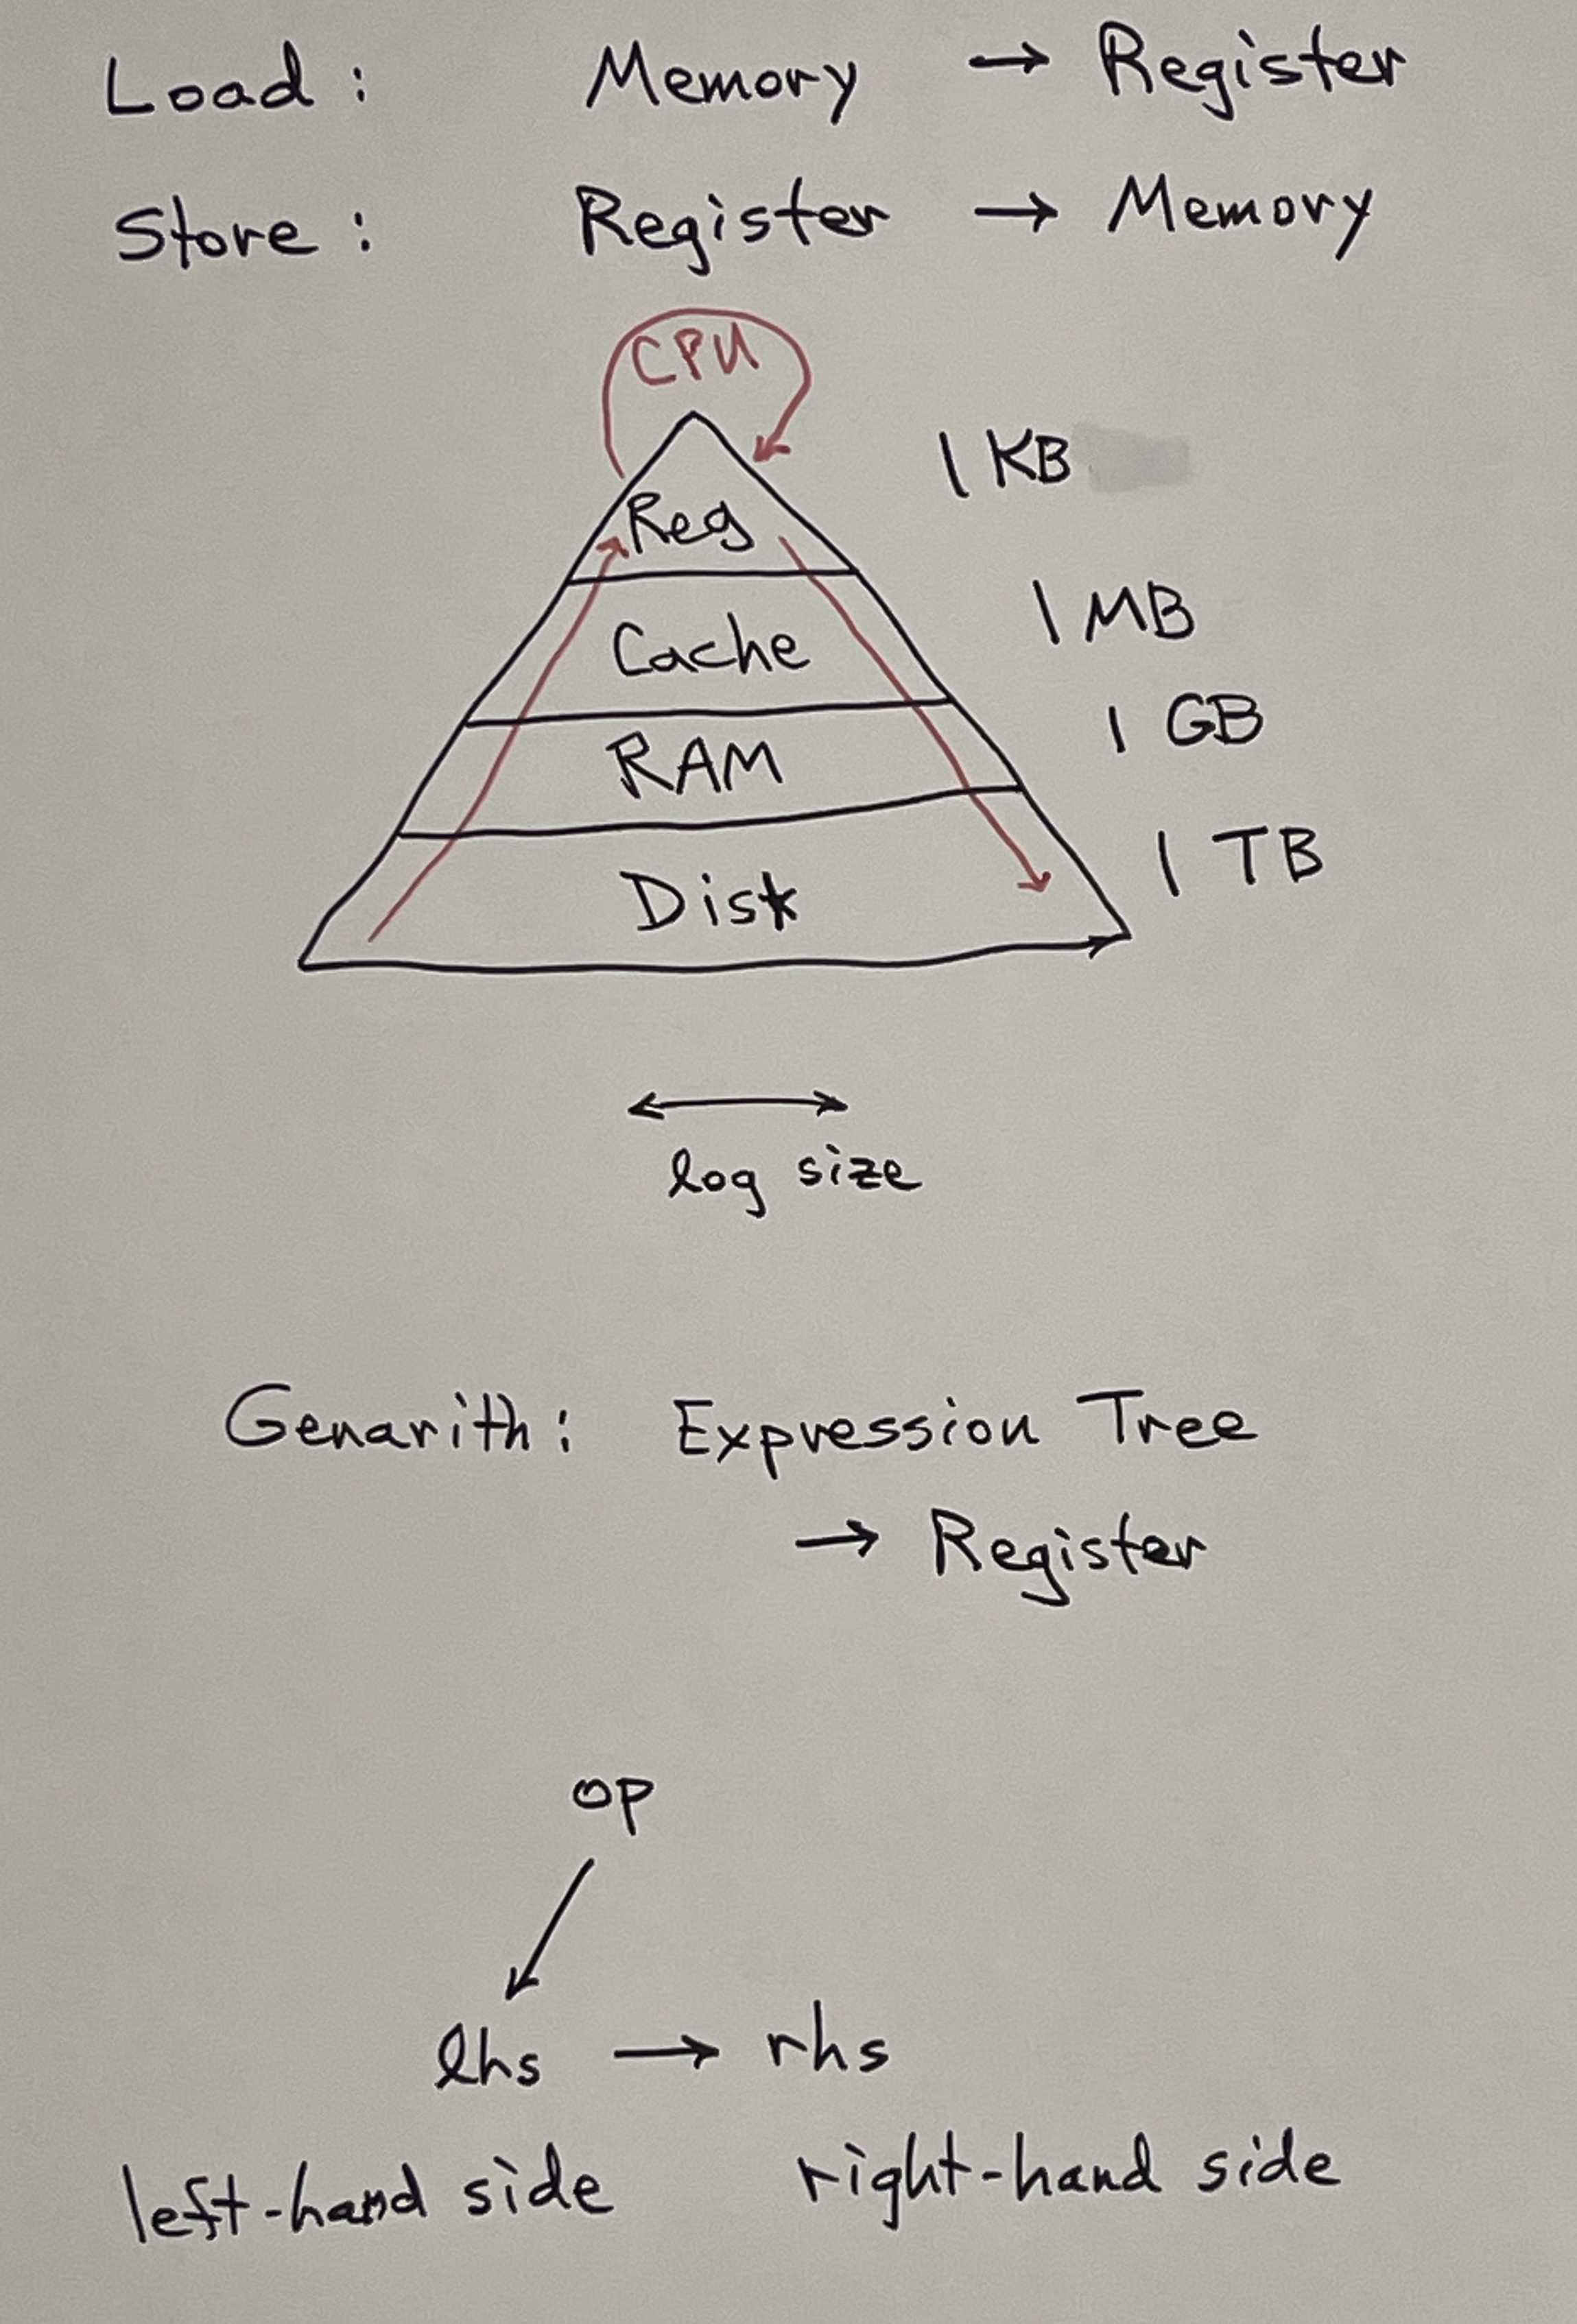 Load : Memory → Register
Store : Register → Memory
CPU
Reg 1 KB
Cache 1 MB
RAM 1 GB
Disk 1 TB
log size
Genarith: Expression Tree
→ Register
op
lhs → rhs
left-hand side right-hand side